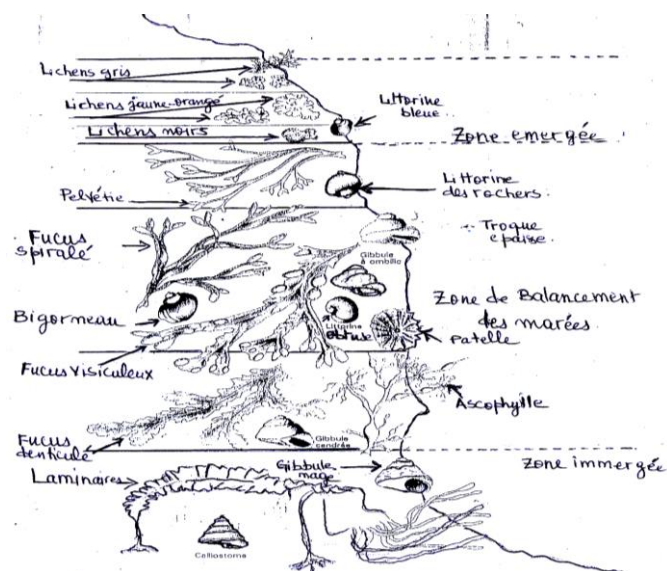 Lichens gris
Lichens jaune-orangé
Littorine
bleue
Lichens noirs
Zone emergée
Littorine
des rochers.
Pelvétie
Troque
epaise.
Fucus
spiralé
Gibbule
à ombilic
Bigorneau
Zone de Balancement
des marées
Littorine
obtuse
Patelle
Fucus visiculeux
Ascophylle
Fucus
denticulé
Gibbule
cendrée
Gibbule
mage
Zone immergée
Laminaires
Calliostome